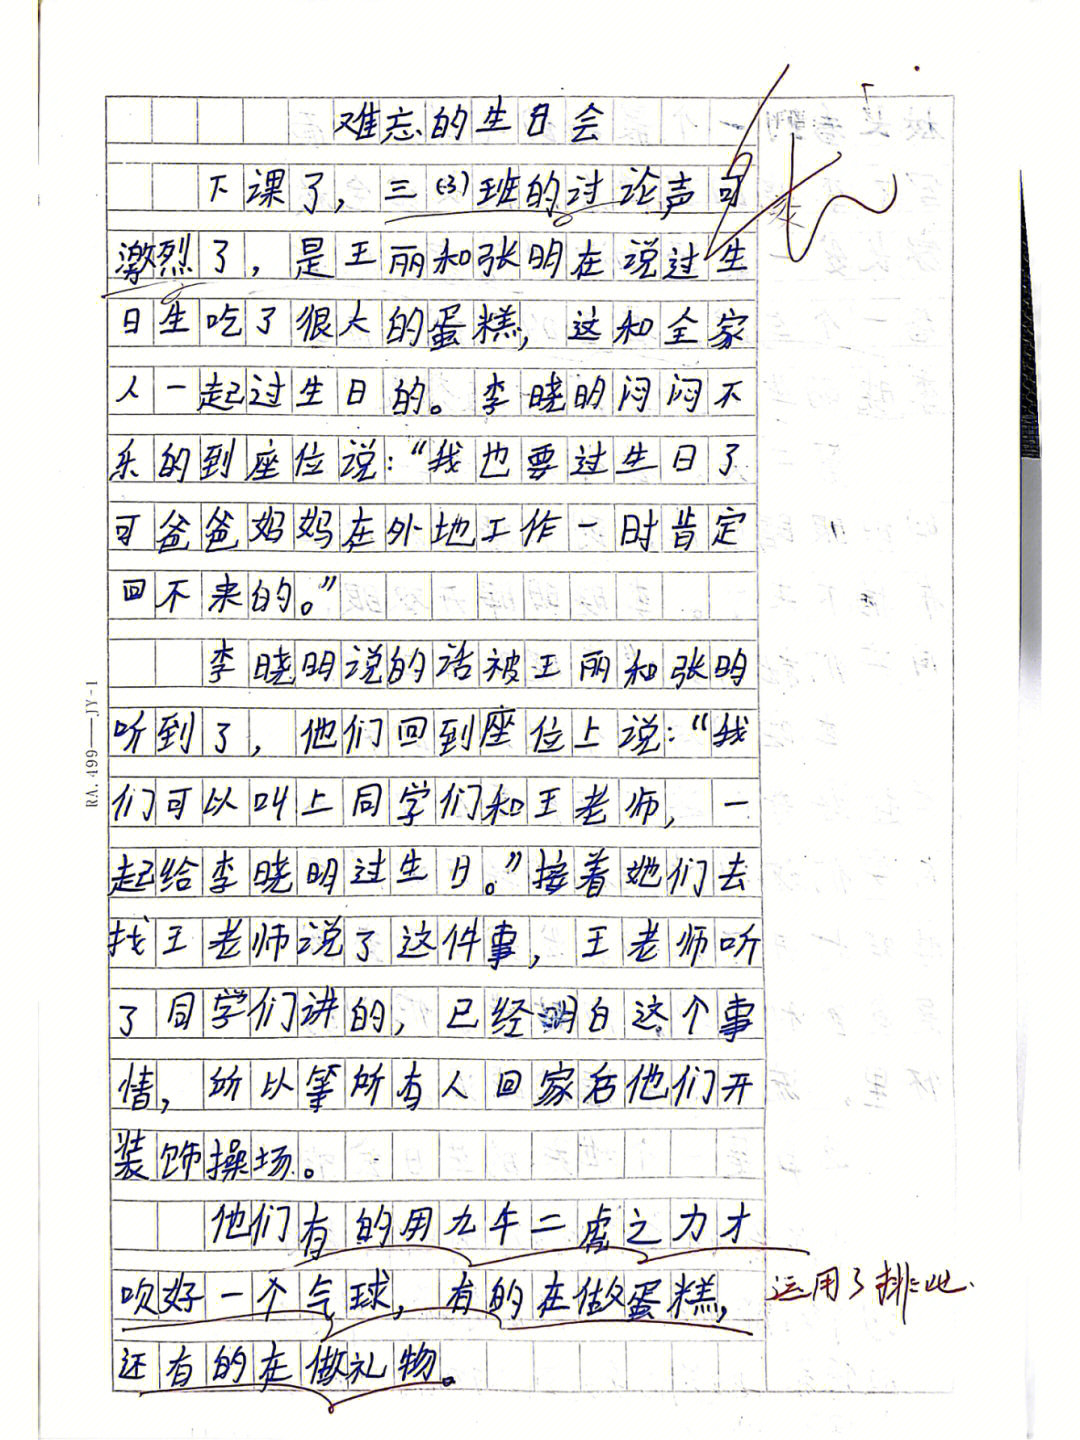 难忘的生日会
下课了，三（3）班的讨论声可
激烈了，是王丽和张明在说过生
日生吃了很大的蛋糕，这和全家
人一起过生日的。李晓明闷闷不
乐的到座位说：“我也要过生日了
可爸爸妈妈在外地工作一时肯定
回不来的。”
李晓明说的话被王丽和张明
听到了，他们回到座位上说：“我
们可以叫上同学们和王老师，一
起给李晓明过生日。”接着她们去
找王老师说了这件事，王老师听
了同学们讲的，已经明白这个事
情，所以等所有人回家后他们开
装饰操场。
他们有的用九牛二虎之力才
吹好一个气球，有的在做蛋糕，
运用了排比
还有的在做礼物。
RA.499—JY-1